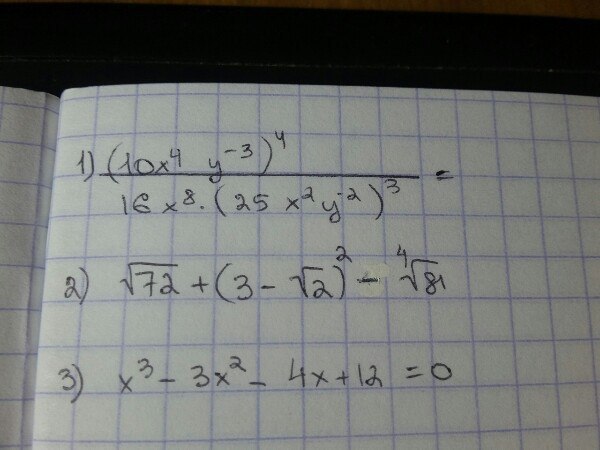 1) (10x⁴ y⁻³)⁴ / 16x⁸·(25x²y⁻²)³ =
2) √72 + (3 − √2)² − ⁴√81
3) x³ − 3x² − 4x + 12 = 0